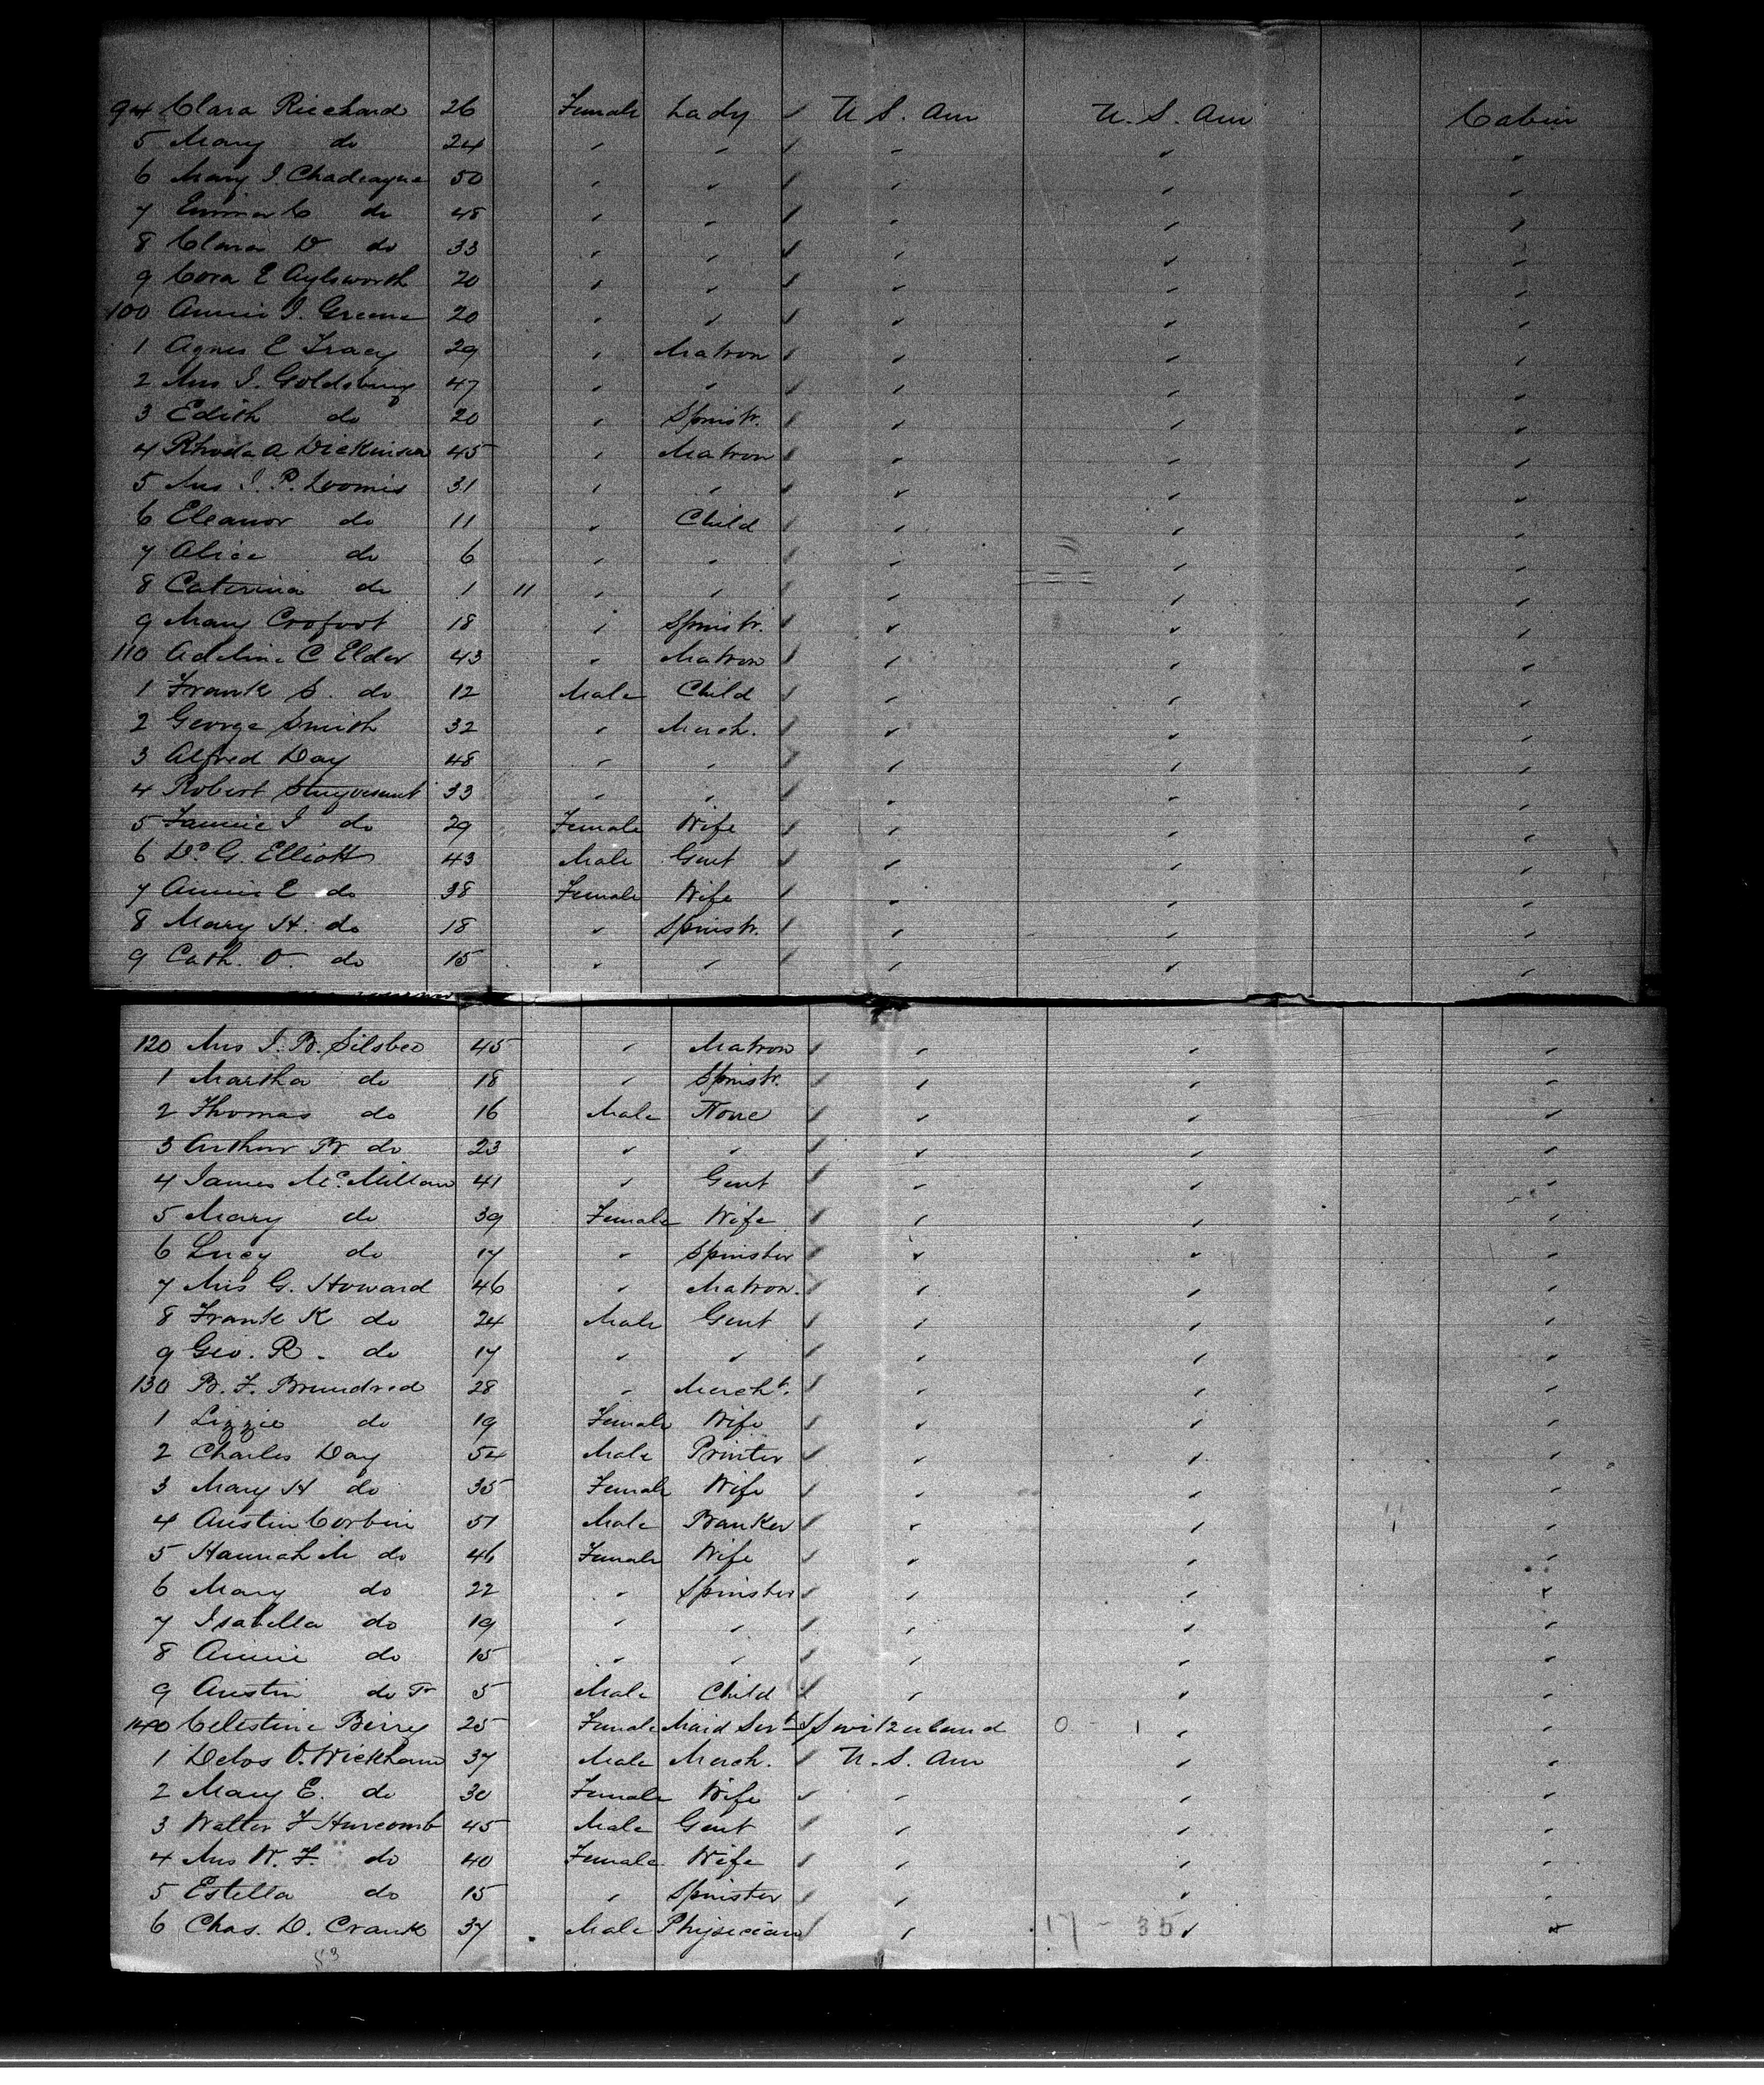 94 Clara Riechard 26 Female Lady ✓ U. S. Am U. S. Am Cabin
5 Mary do 24 " " " " "
6 Mary J. Chadeayne 50 " " " " "
7 Emma C do 48 " " " " "
8 Clara D do 33 " " " " "
9 Cora E Aylsworth 20 " " " " "
100 Annie J. Greene 20 " " " " "
1 Agnes E Tracy 29 " Matron " " "
2 Mrs J. Goldsbury 47 " " " " "
3 Edith do 20 " Spinstr. " " "
4 Rhoda A Dickinson 45 " Matron " " "
5 Mrs J. P. Loomis 31 " " " " "
6 Eleanor do 11 " Child " " "
7 Alice do 6 " " " " "
8 Caterina do 1 11 " " " " "
9 Mary Crofoot 18 " Spinstr. " " "
110 Adeline C Elder 43 " Matron " " "
1 Frank S. do 12 Male Child " " "
2 George Smith 32 " Merch. " " "
3 Alfred Day 48 " " " " "
4 Robert Stuyvesant 33 " " " " "
5 Fannie I do 29 Female Wife " " "
6 Dr. G. Elliott 43 Male Gent " " "
7 Annie E do 38 Female Wife " " "
8 Mary H. do 18 " Spinstr. " " "
9 Cath. O. do 15 " " " " "
120 Mrs J. B. Silsbee 45 " Matron " " "
1 Martha do 18 " Spinstr. " " "
2 Thomas do 16 Male None " " "
3 Arthur B do 23 " " " " "
4 James McMillan 41 " Gent " " "
5 Mary do 39 Female Wife " " "
6 Lucy do 17 " Spinster " " "
7 Mrs G. Howard 46 " Matron. " " "
8 Frank K do 24 Male Gent " " "
9 Geo. R. do 17 " " " " "
130 B. F. Brundred 28 " Mercht. " " "
1 Lizzie do 19 Female Wife " " "
2 Charles Day 54 Male Printer " " "
3 Mary H do 35 Female Wife " " "
4 Austin Corbin 51 Male Banker " " "
5 Hannah M do 46 Female Wife " " "
6 Mary do 22 " Spinster " " "
7 Isabella do 19 " " " " "
8 Annie do 15 " " " " "
9 Austin do Jr 5 Male Child " " "
140 Celestine Berry 25 Female Maid Servt Switzerland 0 - 1 " "
1 Delos O. Wickham 37 Male Merch. U. S. Am " "
2 Mary E. do 30 Female Wife " " "
3 Walter F Hurcomb 45 Male Gent " " "
4 Mrs W. F. do 40 Female Wife " " "
5 Estella do 15 " Spinster " " "
6 Chas. D. Crank 37 Male Physician " 17 - 35 " "
53